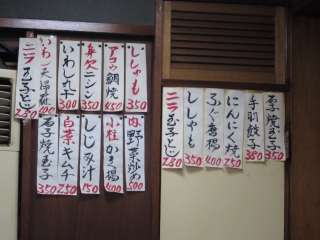 ししゃも 350
アコウ鯛焼 450
身欠ニシン 350
いわし丸干 300
いわし天婦羅 400
ニラ玉子とじ 280
肉野菜炒め 500
小柱かき揚 400
しじみ汁 150
白菜キムチ 250
玉子焼 350
玉子焼 350
手羽餃子 380
にんにく焼 250
ふぐ唐揚 400
ししゃも 350
ニラ玉子とじ 280